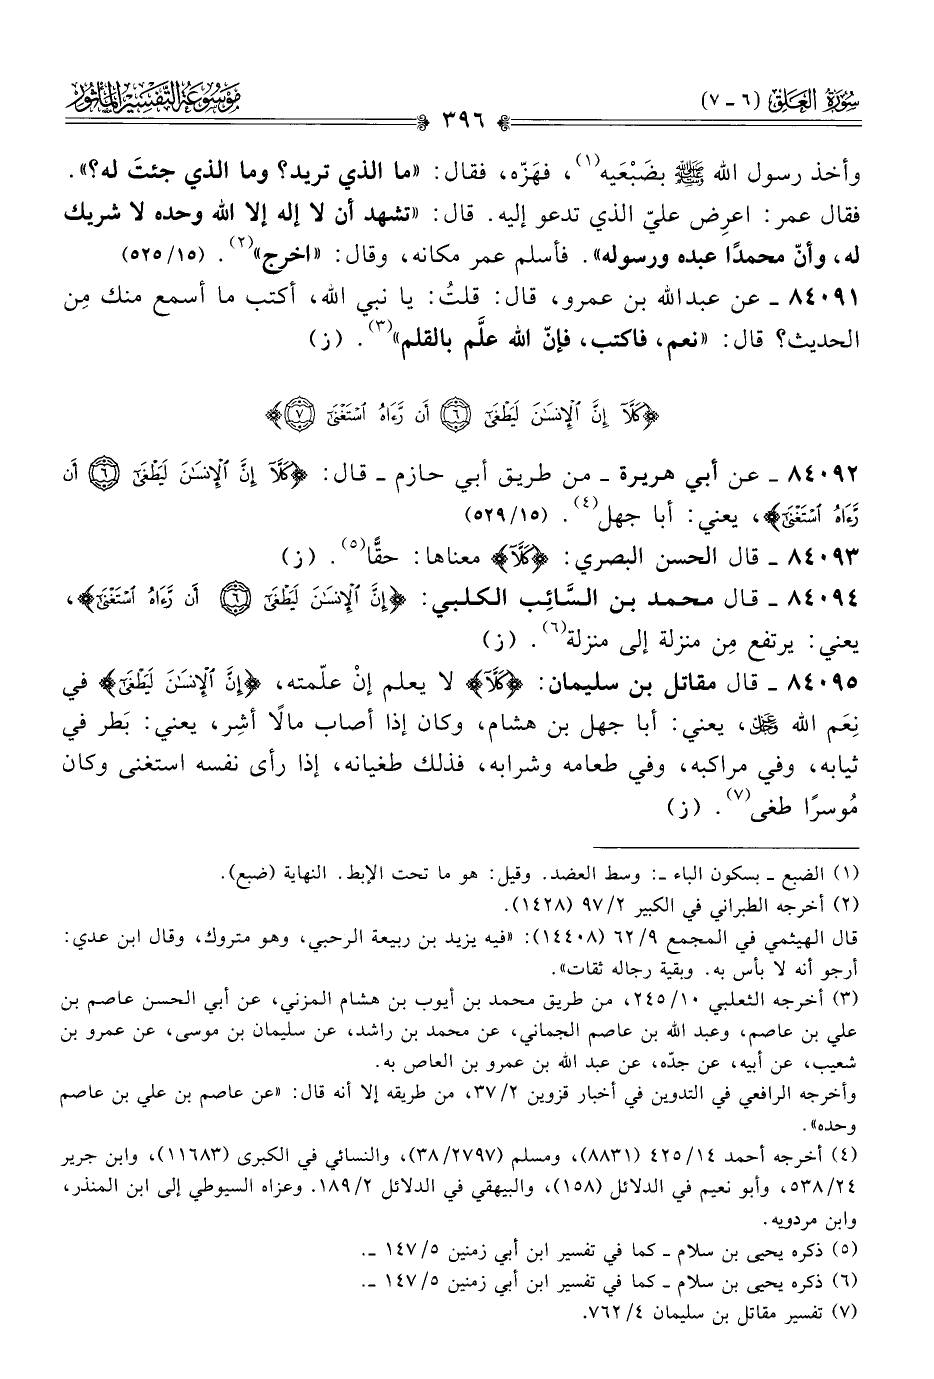 سورة العلق (٦ - ٧)
موسوعة التفسير المأثور
٣٩٦
وأخذ رسول الله ﷺ بضَبْعَيه(١)، فهَزّه، فقال: «ما الذي تريد؟ وما الذي جئتَ له؟».
فقال عمر: اعرِض عليّ الذي تدعو إليه. قال: «تشهد أن لا إله إلا الله وحده لا شريك
له، وأنّ محمدًا عبده ورسوله». فأسلم عمر مكانه، وقال: «اخرج»(٢). (١٥/ ٥٢٥)
٨٤٠٩١ ـ عن عبدالله بن عمرو، قال: قلتُ: يا نبي الله، أكتب ما أسمع منك مِن
الحديث؟ قال: «نعم، فاكتب، فإنّ الله علَّم بالقلم»(٣). (ز)
﴿كَلَّآ إِنَّ ٱلْإِنسَٰنَ لَيَطْغَىٰٓ ۝٦ أَن رَّءَاهُ ٱسْتَغْنَىٰٓ ۝٧﴾
٨٤٠٩٢ ـ عن أبي هريرة ـ من طريق أبي حازم ـ قال: ﴿كَلَّآ إِنَّ ٱلْإِنسَٰنَ لَيَطْغَىٰٓ ۝٦ أَن
رَّءَاهُ ٱسْتَغْنَىٰٓ﴾، يعني: أبا جهل(٤). (١٥/ ٥٢٩)
٨٤٠٩٣ ـ قال الحسن البصري: ﴿كَلَّآ﴾ معناها: حقًّا(٥). (ز)
٨٤٠٩٤ ـ قال محمد بن السَّائِب الكلبي: ﴿إِنَّ ٱلْإِنسَٰنَ لَيَطْغَىٰٓ ۝٦ أَن رَّءَاهُ ٱسْتَغْنَىٰٓ﴾،
يعني: يرتفع مِن منزلة إلى منزلة(٦). (ز)
٨٤٠٩٥ ـ قال مقاتل بن سليمان: ﴿كَلَّآ﴾ لا يعلم إنْ علّمته، ﴿إِنَّ ٱلْإِنسَٰنَ لَيَطْغَىٰٓ﴾ في
نِعَم الله ﷻ، يعني: أبا جهل بن هشام، وكان إذا أصاب مالًا أشِر، يعني: بَطر في
ثيابه، وفي مراكبه، وفي طعامه وشرابه، فذلك طغيانه، إذا رأى نفسه استغنى وكان
مُوسرًا طغى(٧). (ز)
(١) الضبع ـ بسكون الباء ـ: وسط العضد. وقيل: هو ما تحت الإبط. النهاية (ضبع).
(٢) أخرجه الطبراني في الكبير ٢/ ٩٧ (١٤٢٨).
قال الهيثمي في المجمع ٩/ ٦٢ (١٤٤٠٨): «فيه يزيد بن ربيعة الرحبي، وهو متروك، وقال ابن عدي:
أرجو أنه لا بأس به. وبقية رجاله ثقات».
(٣) أخرجه الثعلبي ١٠/ ٢٤٥، من طريق محمد بن أيوب بن هشام المزني، عن أبي الحسن عاصم بن
علي بن عاصم، وعبد الله بن عاصم الجماني، عن محمد بن راشد، عن سليمان بن موسى، عن عمرو بن
شعيب، عن أبيه، عن جدّه، عن عبد الله بن عمرو بن العاص به.
وأخرجه الرافعي في التدوين في أخبار قزوين ٢/ ٣٧، من طريقه إلا أنه قال: «عن عاصم بن علي بن عاصم
وحده».
(٤) أخرجه أحمد ١٤/ ٤٢٥ (٨٨٣١)، ومسلم (٢٧٩٧/ ٣٨)، والنسائي في الكبرى (١١٦٨٣)، وابن جرير
٢٤/ ٥٣٨، وأبو نعيم في الدلائل (١٥٨)، والبيهقي في الدلائل ٢/ ١٨٩. وعزاه السيوطي إلى ابن المنذر،
وابن مردويه.
(٥) ذكره يحيى بن سلام ـ كما في تفسير ابن أبي زمنين ٥/ ١٤٧ ـ.
(٦) ذكره يحيى بن سلام ـ كما في تفسير ابن أبي زمنين ٥/ ١٤٧ ـ.
(٧) تفسير مقاتل بن سليمان ٤/ ٧٦٢.